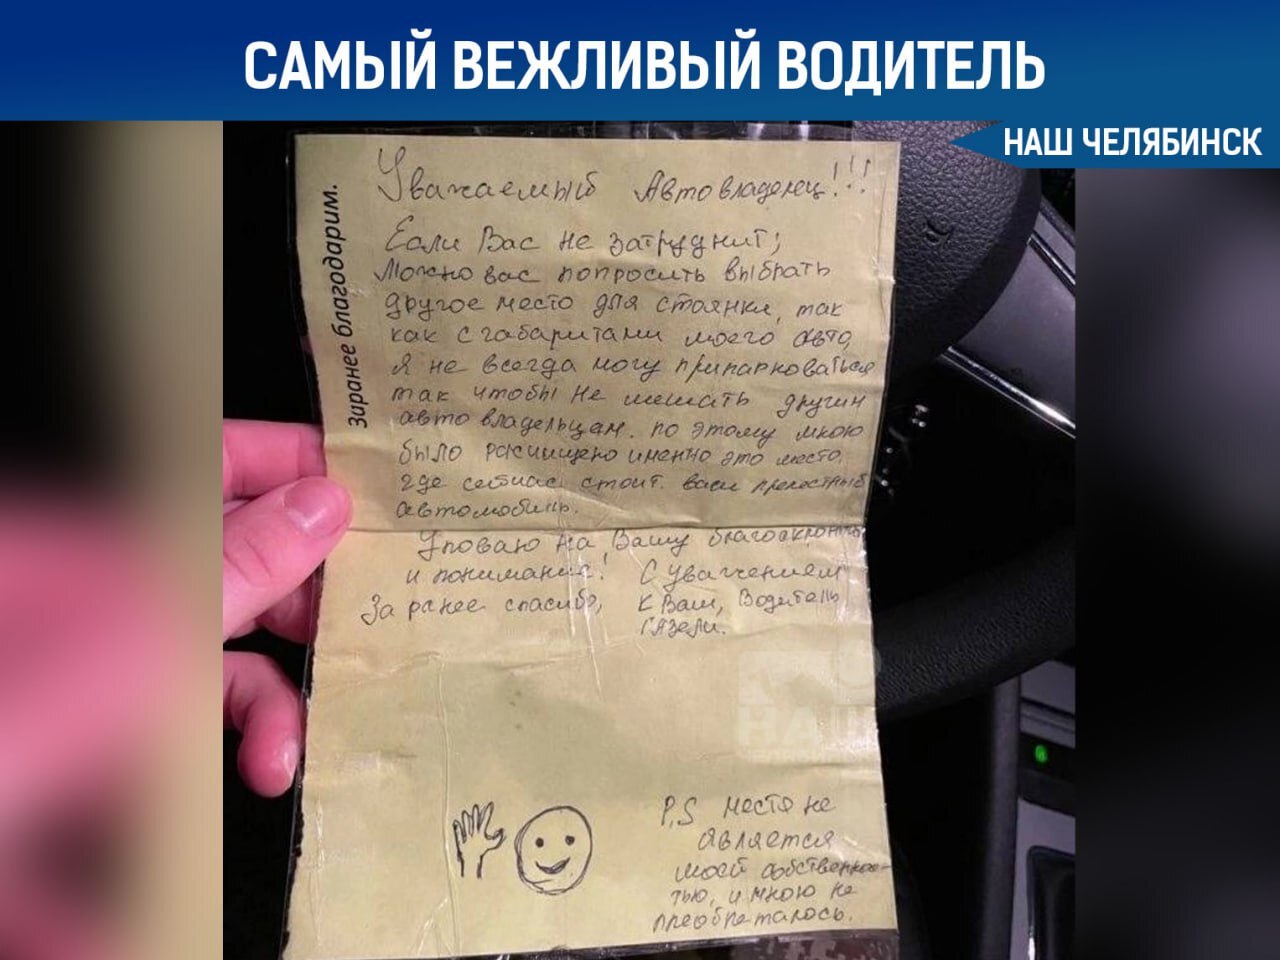 САМЫЙ ВЕЖЛИВЫЙ ВОДИТЕЛЬ
НАШ ЧЕЛЯБИНСК
Заранее благодарим.
Уважаемый Автовладелец!!!
Если Вас не затруднит;
Можно вас попросить выбрать
другое место для стоянки, так
как с габаритами моего авто,
Я не всегда могу припарковаться
так чтобы не мешать другим
авто владельцам. по этому мною
было расчищено именно это место,
где сейчас стоит. ваш прелестный
автомобиль.
Уповаю на Вашу
и понимание! С уважением
За ранее спасибо, к Вам, Водитель
Газели.
P,S место не
является
моей собственнос-
тью, и мною не
преобреталось.
НАШ